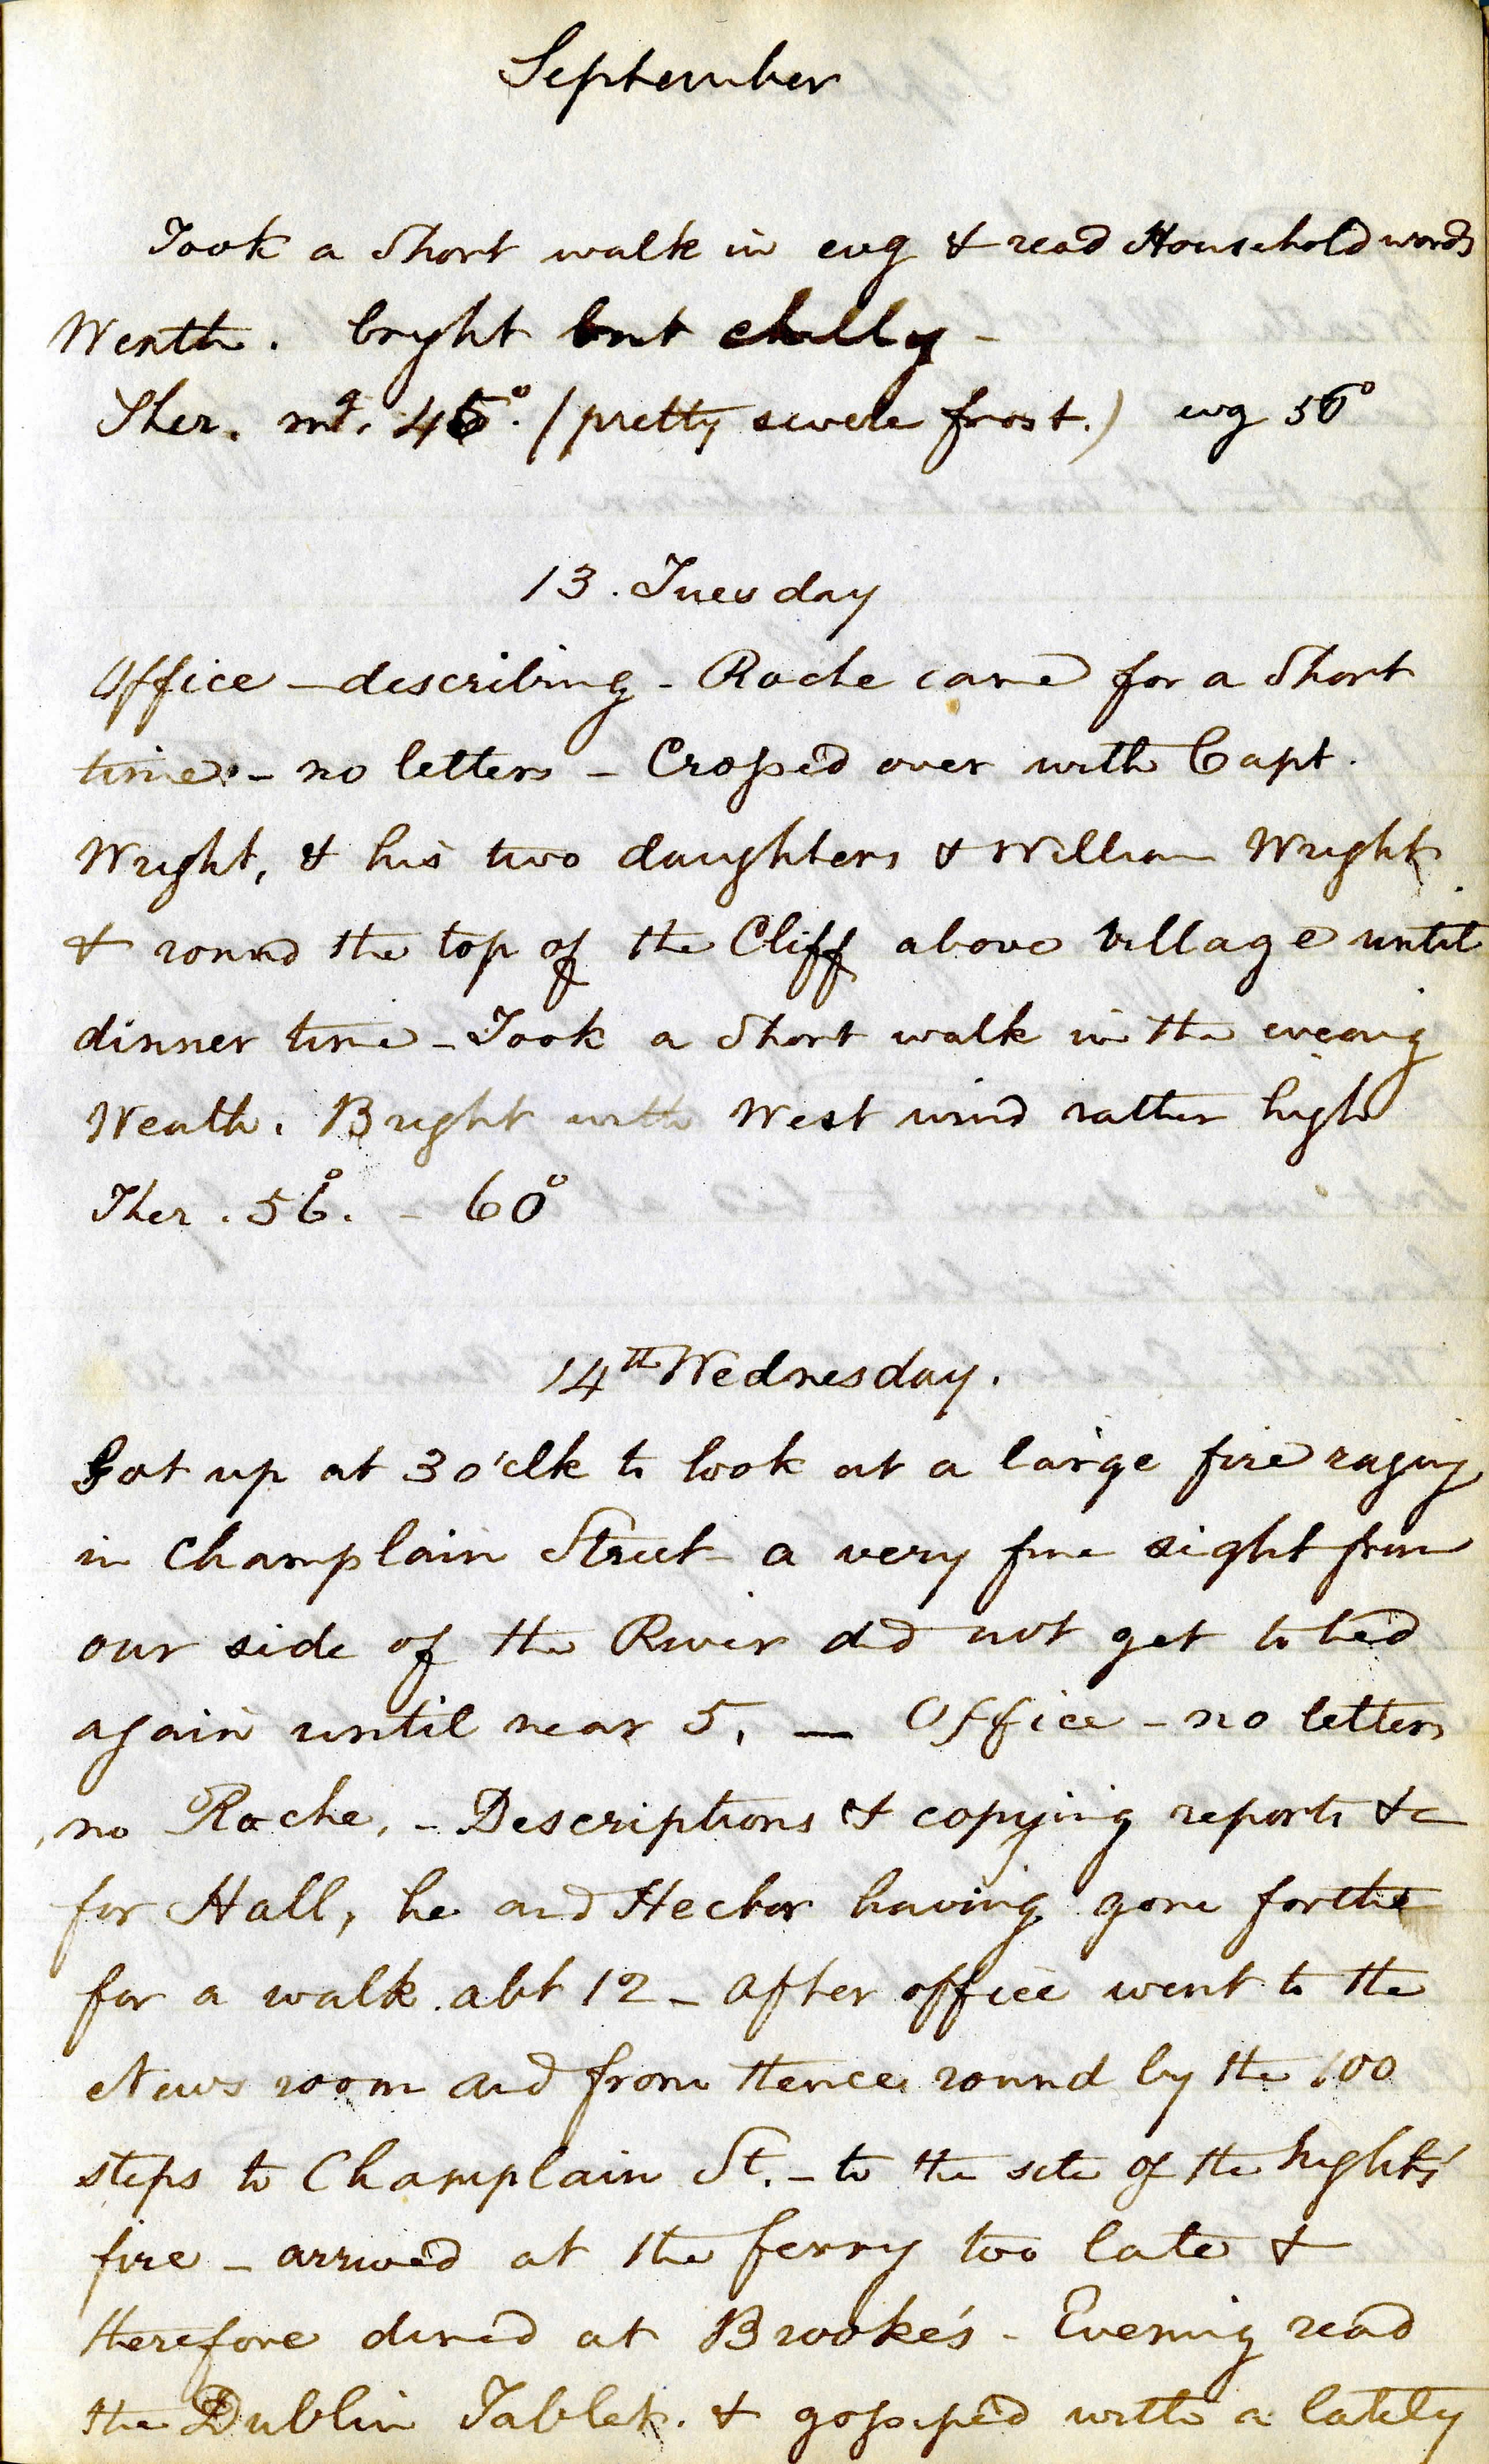 September
Took a Short walk in evg & read Household words
Weath. bright but chilly -
Ther. mg. 45°. (pretty severe frost.) evg 56°
13. Tuesday
Office - describing - Roche came for a Short
time - no letters - Crossed over with Capt.
Wright, & his two daughters & William Wright
& round the top of the Cliff above Village until
dinner time - Took a Short walk in the evening
Weath. Bright with West wind rather high
Ther. 56°. - 60°
14th Wednesday.
Got up at 3 o'clk to look at a large fire raging
in Champlain Street a very fine sight from
our side of the River did not get to bed
again until near 5. — Office - no letters
no Roche, - Descriptions & copying reports &c
for Hall, he and Hector having gone forthe
for a walk abt 12 - After office went to the
News room and from thence round by the 100
steps to Champlain St. - to the site of the night's
fire - arrived at the ferry too late &
therefore dined at Brooke's - Evening read
the Dublin Tablet. & gossiped with a lately